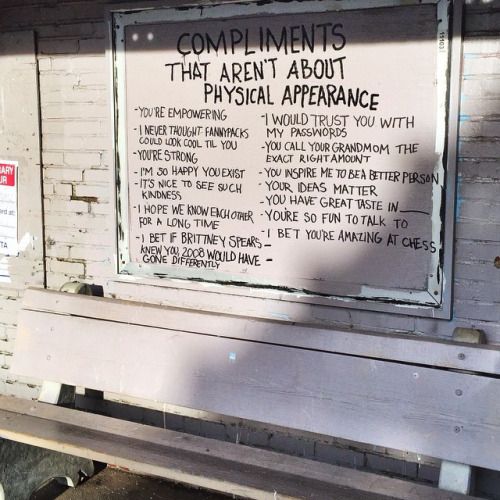 COMPLIMENTS
THAT AREN'T ABOUT
PHYSICAL APPEARANCE
-YOU'RE EMPOWERING
-I NEVER THOUGHT FANNYPACKS
COULD LOOK COOL TIL YOU
-YOU'RE STRONG
-I'M SO HAPPY YOU EXIST
-IT'S NICE TO SEE SUCH
KINDNESS
-I HOPE WE KNOW EACH OTHER
FOR A LONG TIME
-I BET IF BRITTNEY SPEARS
KNEW YOU, 2008 WOULD HAVE
GONE DIFFERENTLY
-I WOULD TRUST YOU WITH
MY PASSWORDS
-YOU CALL YOUR GRANDMOM THE
EXACT RIGHT AMOUNT
-YOU INSPIRE ME TO BE A BETTER PERSON
-YOUR IDEAS MATTER
-YOU HAVE GREAT TASTE IN ____
-YOU'RE SO FUN TO TALK TO
- I BET YOU'RE AMAZING AT CHESS
-